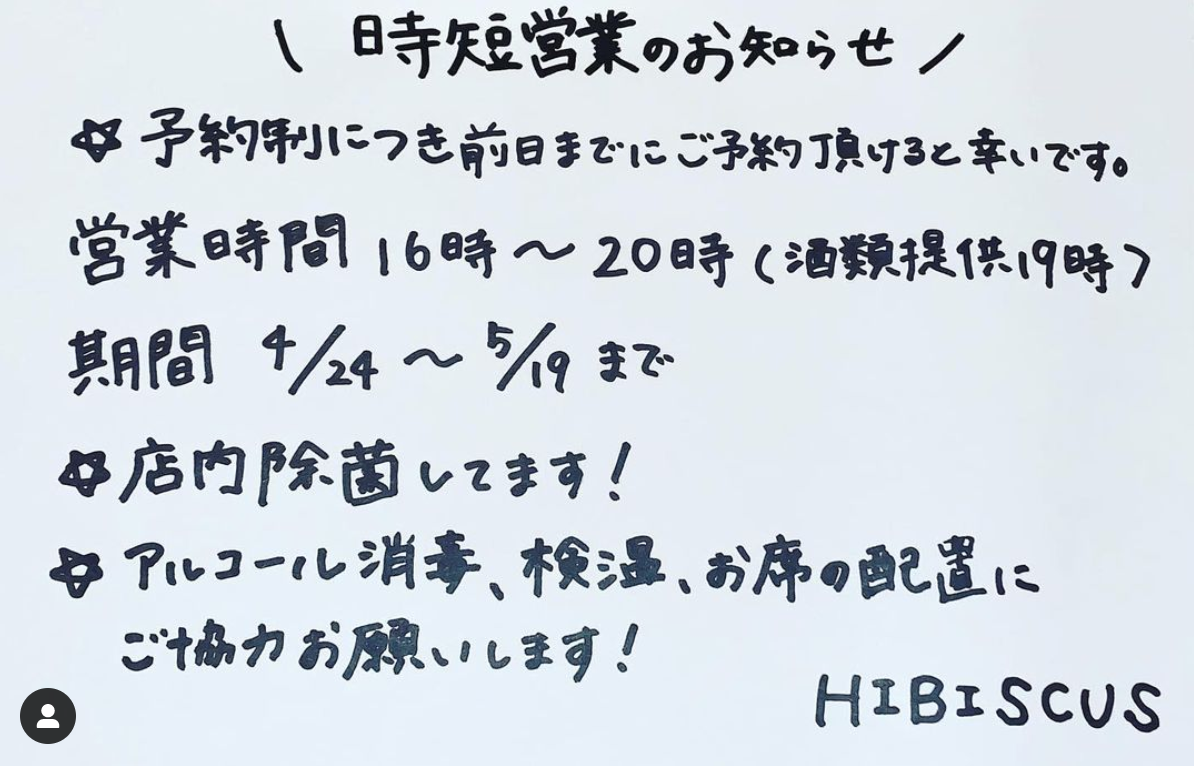 \ 時短営業のお知らせ /
☆ 予約制につき前日までにご予約頂けると幸いです。
営業時間 16時〜20時(酒類提供19時)
期間 4/24 〜 5/19 まで
☆店内除菌してます!
☆アルコール消毒、検温、お席の配置に
ご協力お願いします!
HIBISCUS